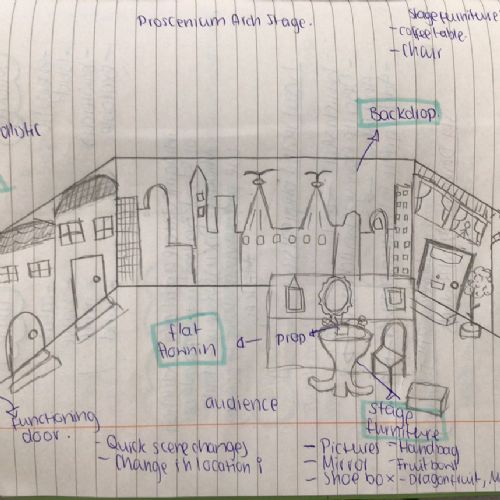 Proscenium Arch Stage.
Stage furniture
- coffee table.
- Chair
Backdrop.
flat
prop
audience
functioning
door.
stage
furniture
- Quick scene changes
- Change in location
- Pictures
- Mirror
- Shoe box
- Handbag
- Fruit bowl
- Dragonfruit,